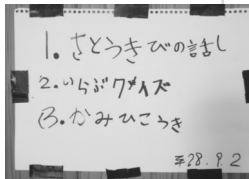 1. さとうきびの話し
2. いらぶクイズ
3. かみひこうき
平28.9.2